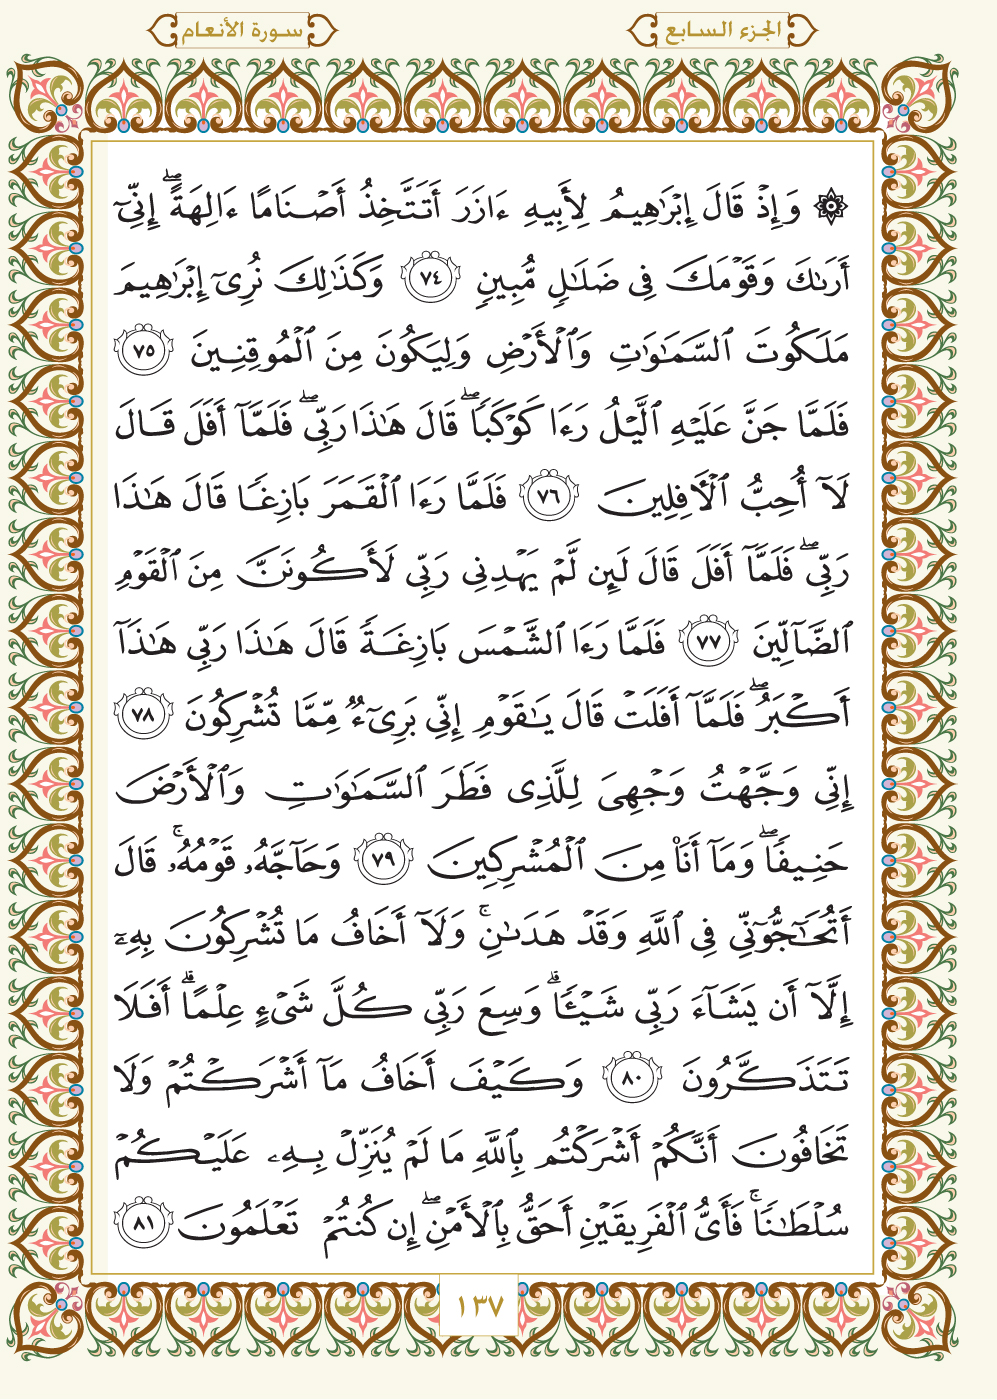 الجزء السابع
سورة الأنعام
۞ وَإِذْ قَالَ إِبْرَٰهِيمُ لِأَبِيهِ ءَازَرَ أَتَتَّخِذُ أَصْنَامًا ءَالِهَةً ۖ إِنِّىٓ
أَرَىٰكَ وَقَوْمَكَ فِى ضَلَـٰلٍ مُّبِينٍ ٧٤ وَكَذَٰلِكَ نُرِىٓ إِبْرَٰهِيمَ
مَلَكُوتَ ٱلسَّمَـٰوَٰتِ وَٱلْأَرْضِ وَلِيَكُونَ مِنَ ٱلْمُوقِنِينَ ٧٥
فَلَمَّا جَنَّ عَلَيْهِ ٱلَّيْلُ رَءَا كَوْكَبًا ۖ قَالَ هَـٰذَا رَبِّى ۖ فَلَمَّآ أَفَلَ قَالَ
لَآ أُحِبُّ ٱلْـَٔافِلِينَ ٧٦ فَلَمَّا رَءَا ٱلْقَمَرَ بَازِغًا قَالَ هَـٰذَا
رَبِّى ۖ فَلَمَّآ أَفَلَ قَالَ لَئِن لَّمْ يَهْدِنِى رَبِّى لَأَكُونَنَّ مِنَ ٱلْقَوْمِ
ٱلضَّآلِّينَ ٧٧ فَلَمَّا رَءَا ٱلشَّمْسَ بَازِغَةً قَالَ هَـٰذَا رَبِّى هَـٰذَآ
أَكْبَرُ ۖ فَلَمَّآ أَفَلَتْ قَالَ يَـٰقَوْمِ إِنِّى بَرِىٓءٌ مِّمَّا تُشْرِكُونَ ٧٨
إِنِّى وَجَّهْتُ وَجْهِىَ لِلَّذِى فَطَرَ ٱلسَّمَـٰوَٰتِ وَٱلْأَرْضَ
حَنِيفًا ۖ وَمَآ أَنَا۠ مِنَ ٱلْمُشْرِكِينَ ٧٩ وَحَآجَّهُۥ قَوْمُهُۥ ۚ قَالَ
أَتُحَـٰٓجُّوٓنِّى فِى ٱللَّهِ وَقَدْ هَدَىٰنِ ۚ وَلَآ أَخَافُ مَا تُشْرِكُونَ بِهِۦٓ
إِلَّآ أَن يَشَآءَ رَبِّى شَيْـًٔا ۗ وَسِعَ رَبِّى كُلَّ شَىْءٍ عِلْمًا ۗ أَفَلَا
تَتَذَكَّرُونَ ٨٠ وَكَيْفَ أَخَافُ مَآ أَشْرَكْتُمْ وَلَا
تَخَافُونَ أَنَّكُمْ أَشْرَكْتُم بِٱللَّهِ مَا لَمْ يُنَزِّلْ بِهِۦ عَلَيْكُمْ
سُلْطَـٰنًا ۚ فَأَىُّ ٱلْفَرِيقَيْنِ أَحَقُّ بِٱلْأَمْنِ ۖ إِن كُنتُمْ تَعْلَمُونَ ٨١
١٣٧